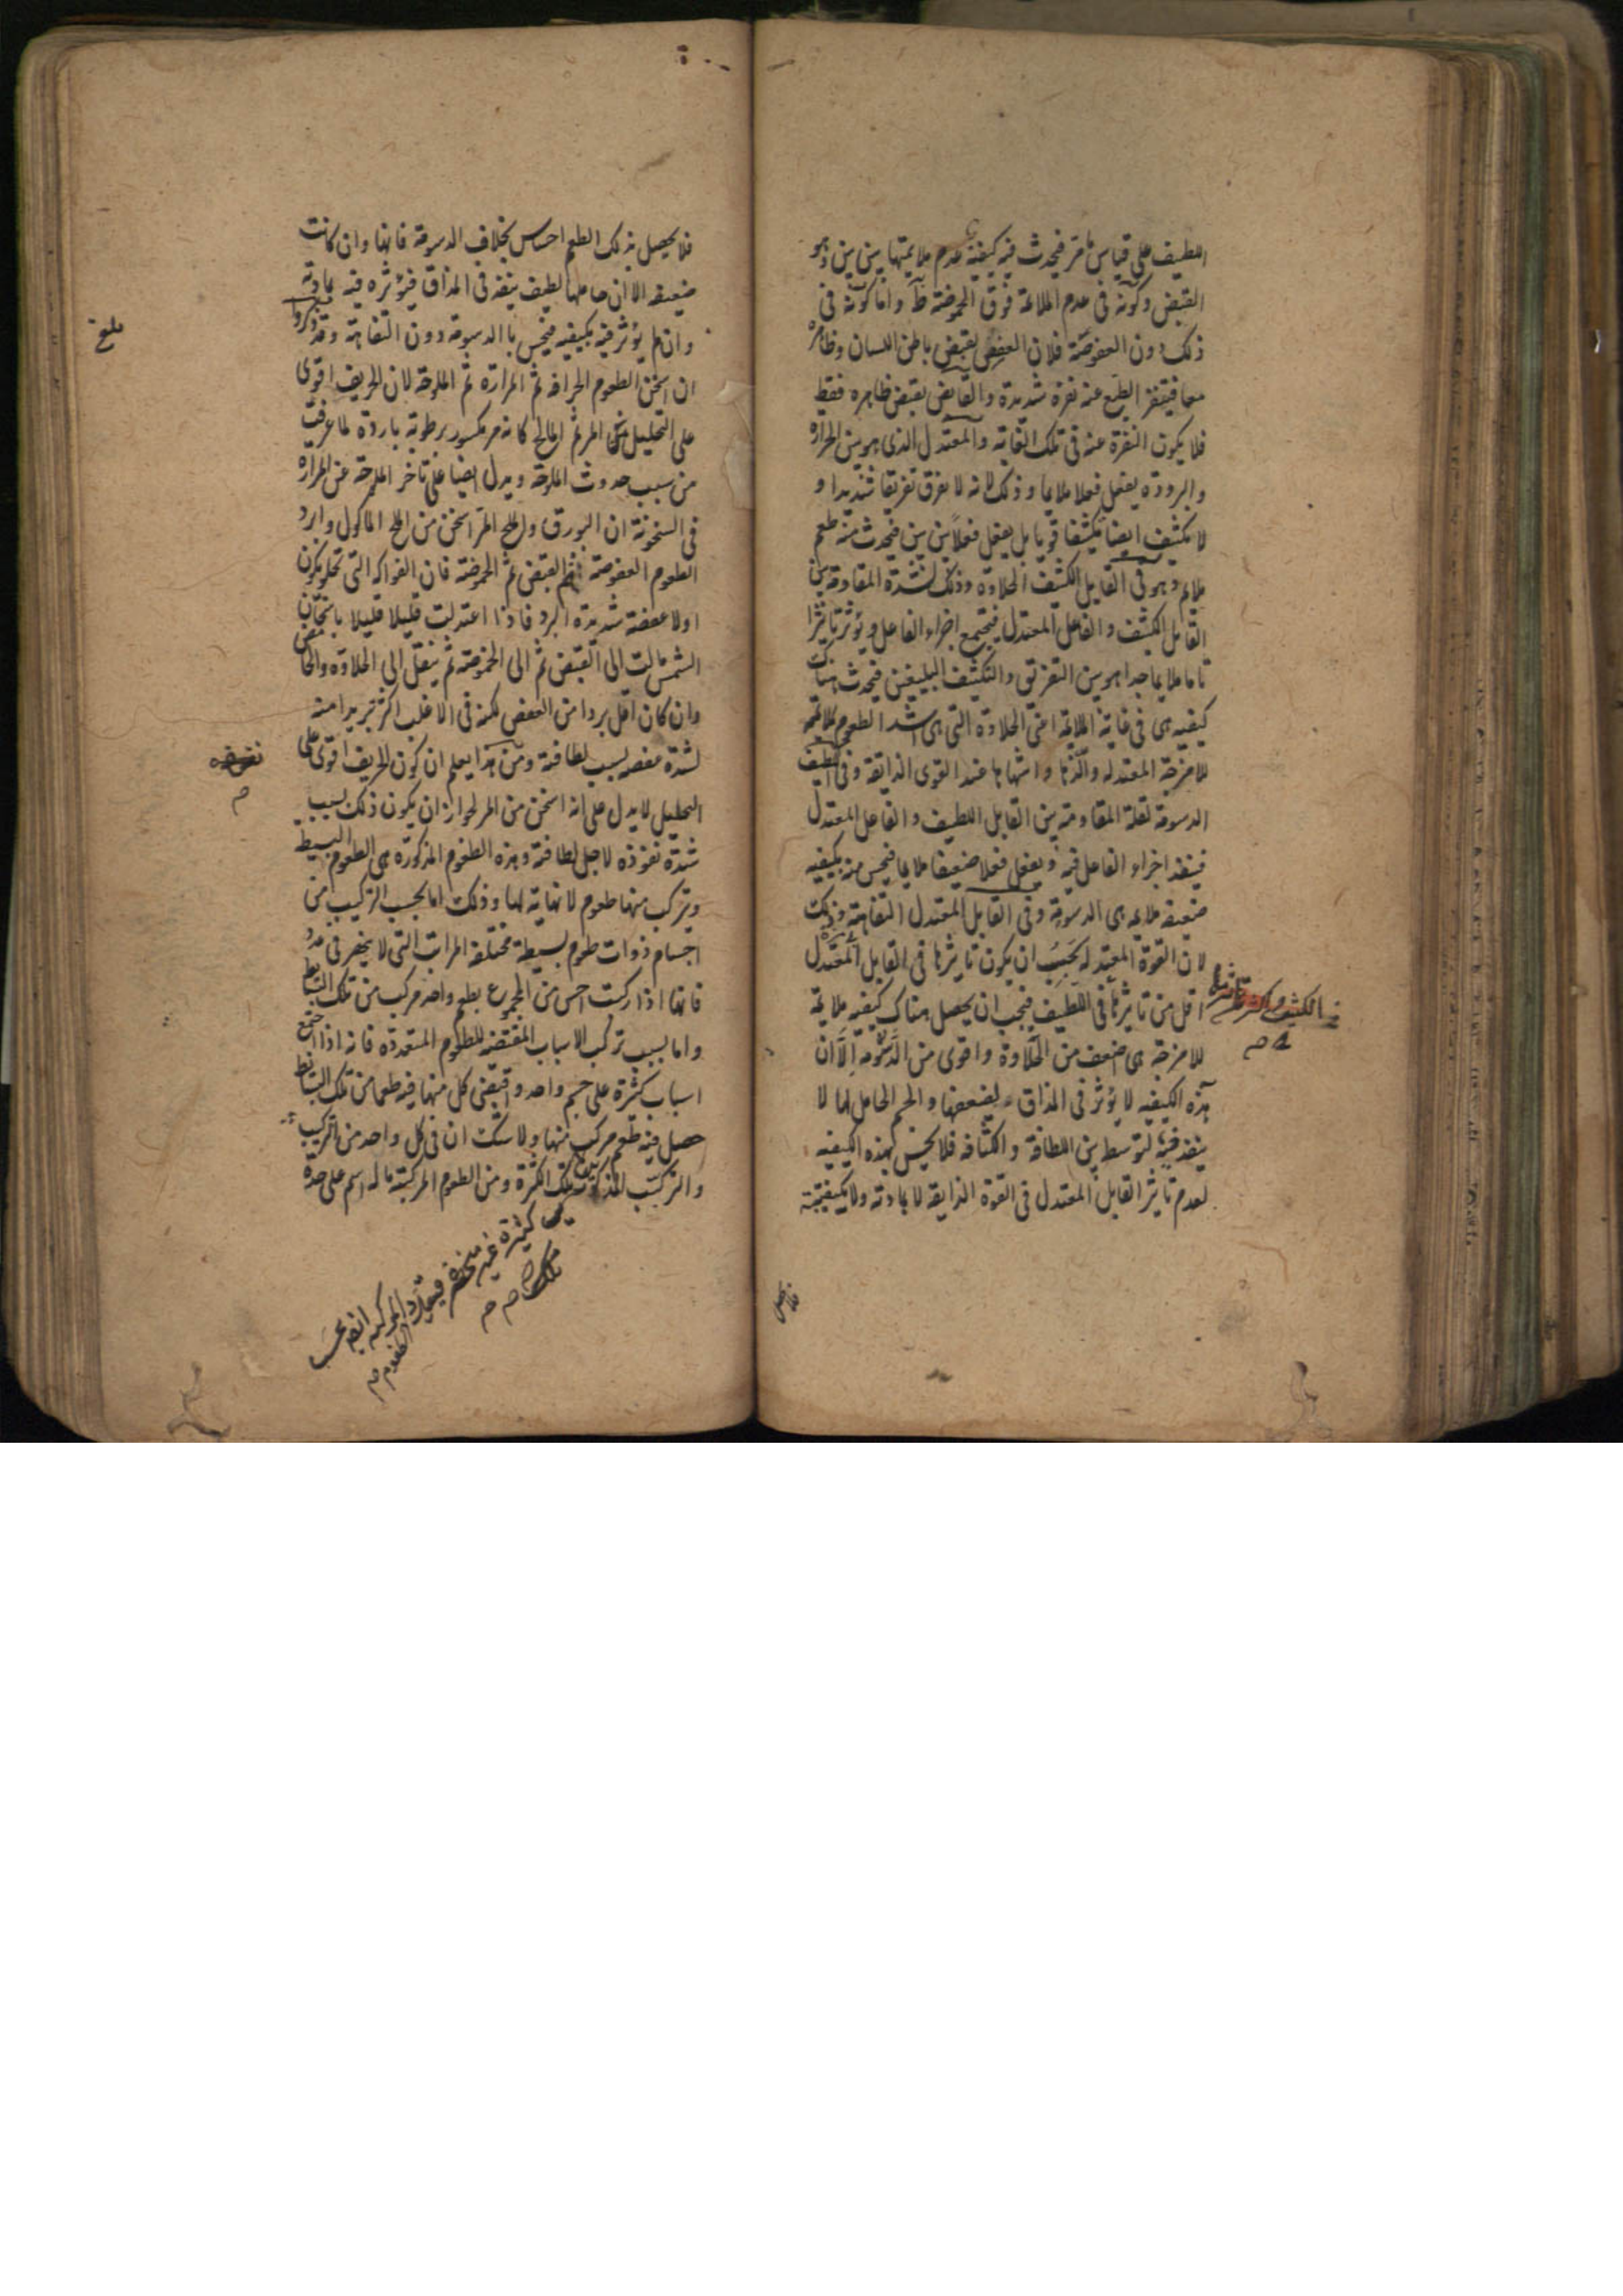 اللطيف على قياس ما مر فيحدث فيه كيفية عدم ملايمتها بين بين وهو
القبض وكونه فى عدم الملائمة فوق الحموضة ظ واما كونه فى
ذلك دون العفوصة فلان العفص يقبض باطن اللسان وظاهره
معا فيتنفر الطبع عنه نفرة شديدة والقابض يقبض ظاهره فقط
فلا يكون النفرة عنه فى تلك الغاية والمعتدل الذى هو بين الحرارة
والبرودة يفعل فعلا ملايما وذلك لانه لا يفرق تفريقا شديدا و
لا يكثف ايضا تكثيفا قويا بل يفعل فعلا بين بين فيحدث منه طعم
ملايم وهو فى القابل الكثيف الحلاوة وذلك لشدة المقاومة بين
القابل الكثيف والفاعل المعتدل فيجتمع اجزاء الفاعل ويؤثر تاثيرا
تاما ملايما جدا هو بين التفريق والتكثيف البليغين فيحدث هناك
كيفية هى فى غاية الملايمة اعنى الحلاوة التى هى اشد الطعوم ملائمة
للامزجة المعتدله والذها واشهاها عند القوى الذائقة وفى اللطيف
الدسومة لقلة المقاومة بين القابل اللطيف والفاعل المعتدل
فينفذ اجزاء الفاعل فيه ويفعل فعلا ضعيفا ملايما فيحس منه بكيفية
ضعيفة ملايمة هى الدسومة وفى القابل المعتدل التفاهة وذلك
لان القوة المعتدله يجب ان يكون تاثيرها فى القابل المعتدل
اقل من تاثيرها فى اللطيف فيجب ان يحصل هناك كيفية ملايمة
الكثيف واكثر من تاثيرها
للامزجة هى اضعف من الحلاوة واقوى من الدسومة الا ان
هذه الكيفية لا يؤثر فى المذاق لضعفها والجسم الحامل لها لا
ينفذ فيه لتوسطه بين اللطافة والكثافة فلا يحس بهذه الكيفية
لعدم تاثير القابل المعتدل فى القوة الذايقة لا بمادته ولا بكيفيته
فلا يحصل
فلا يحصل بذلك الطعم احساس بخلاف الدسومة فانها وان كانت
ضعيفة الا ان حاملها لطيف ينفذ فى المذاق فيؤثره فيه بمادته
وان لم يؤثر فيه بكيفيته فيحس بالدسومة دون التفاهة وقد ذكروا
ان اسخن الطعوم الحرافة ثم المرارة ثم الملوحة لان الحريف اقوى
على التحليل من المر ثم المالح كانه مر مكسور برطوبة باردة لما عرفت
من سبب حدوث الملوحة ويدل ايضا على تاخر الملوحة عن المرارة
فى السخونة ان البورق والملح المر اسخن من الملح الماكول وابرد
الطعوم العفوصة ثم القبض ثم الحموضة فان الفواكه التى تحلو يكون
اولا عفصة شديدة البرد فاذا اعتدلت قليلا قليلا باسخان
الشمس مالت الى القبض ثم الى الحموضة ثم ينتقل الى الحلاوة والحامض
وان كان اقل بردا من العفص لكنه فى الاغلب اكثر تبريدا منه
لشدة غوصه بسبب لطافته ومن هذا يعلم ان كون الحريف اقوى على
التحليل لا يدل على انه اسخن من المر لجواز ان يكون ذلك بسبب
شدة نفوذه لاجل لطافته وهذه الطعوم المذكورة هى الطعوم البسيطة
ويتركب منها طعوم لا نهاية لها وذلك اما بحسب التركيب من
اجسام ذوات طعوم بسيطة مختلفة المراتب التى لا ينحصر فى عدد
فانها اذا ركبت احس من المجموع بطعم واحد مركب من تلك البسائط
واما بسبب تركب الاسباب المقتضية للطعوم المتعددة فانه اذا اجتمع
اسباب كثيرة على جسم واحد واقتضى كل منها فيه طعما من تلك البسائط
حصل فيه طعم مركب منها ولا شك ان فى كل واحد من التركيب
والتركب المذكورين تلك الكثرة ومن الطعوم المركبة ما له اسم على حدة
كثيرة غير منحصرة فيتعدد المركبة ايضا بحسب
تلك
الطعوم
بلغ